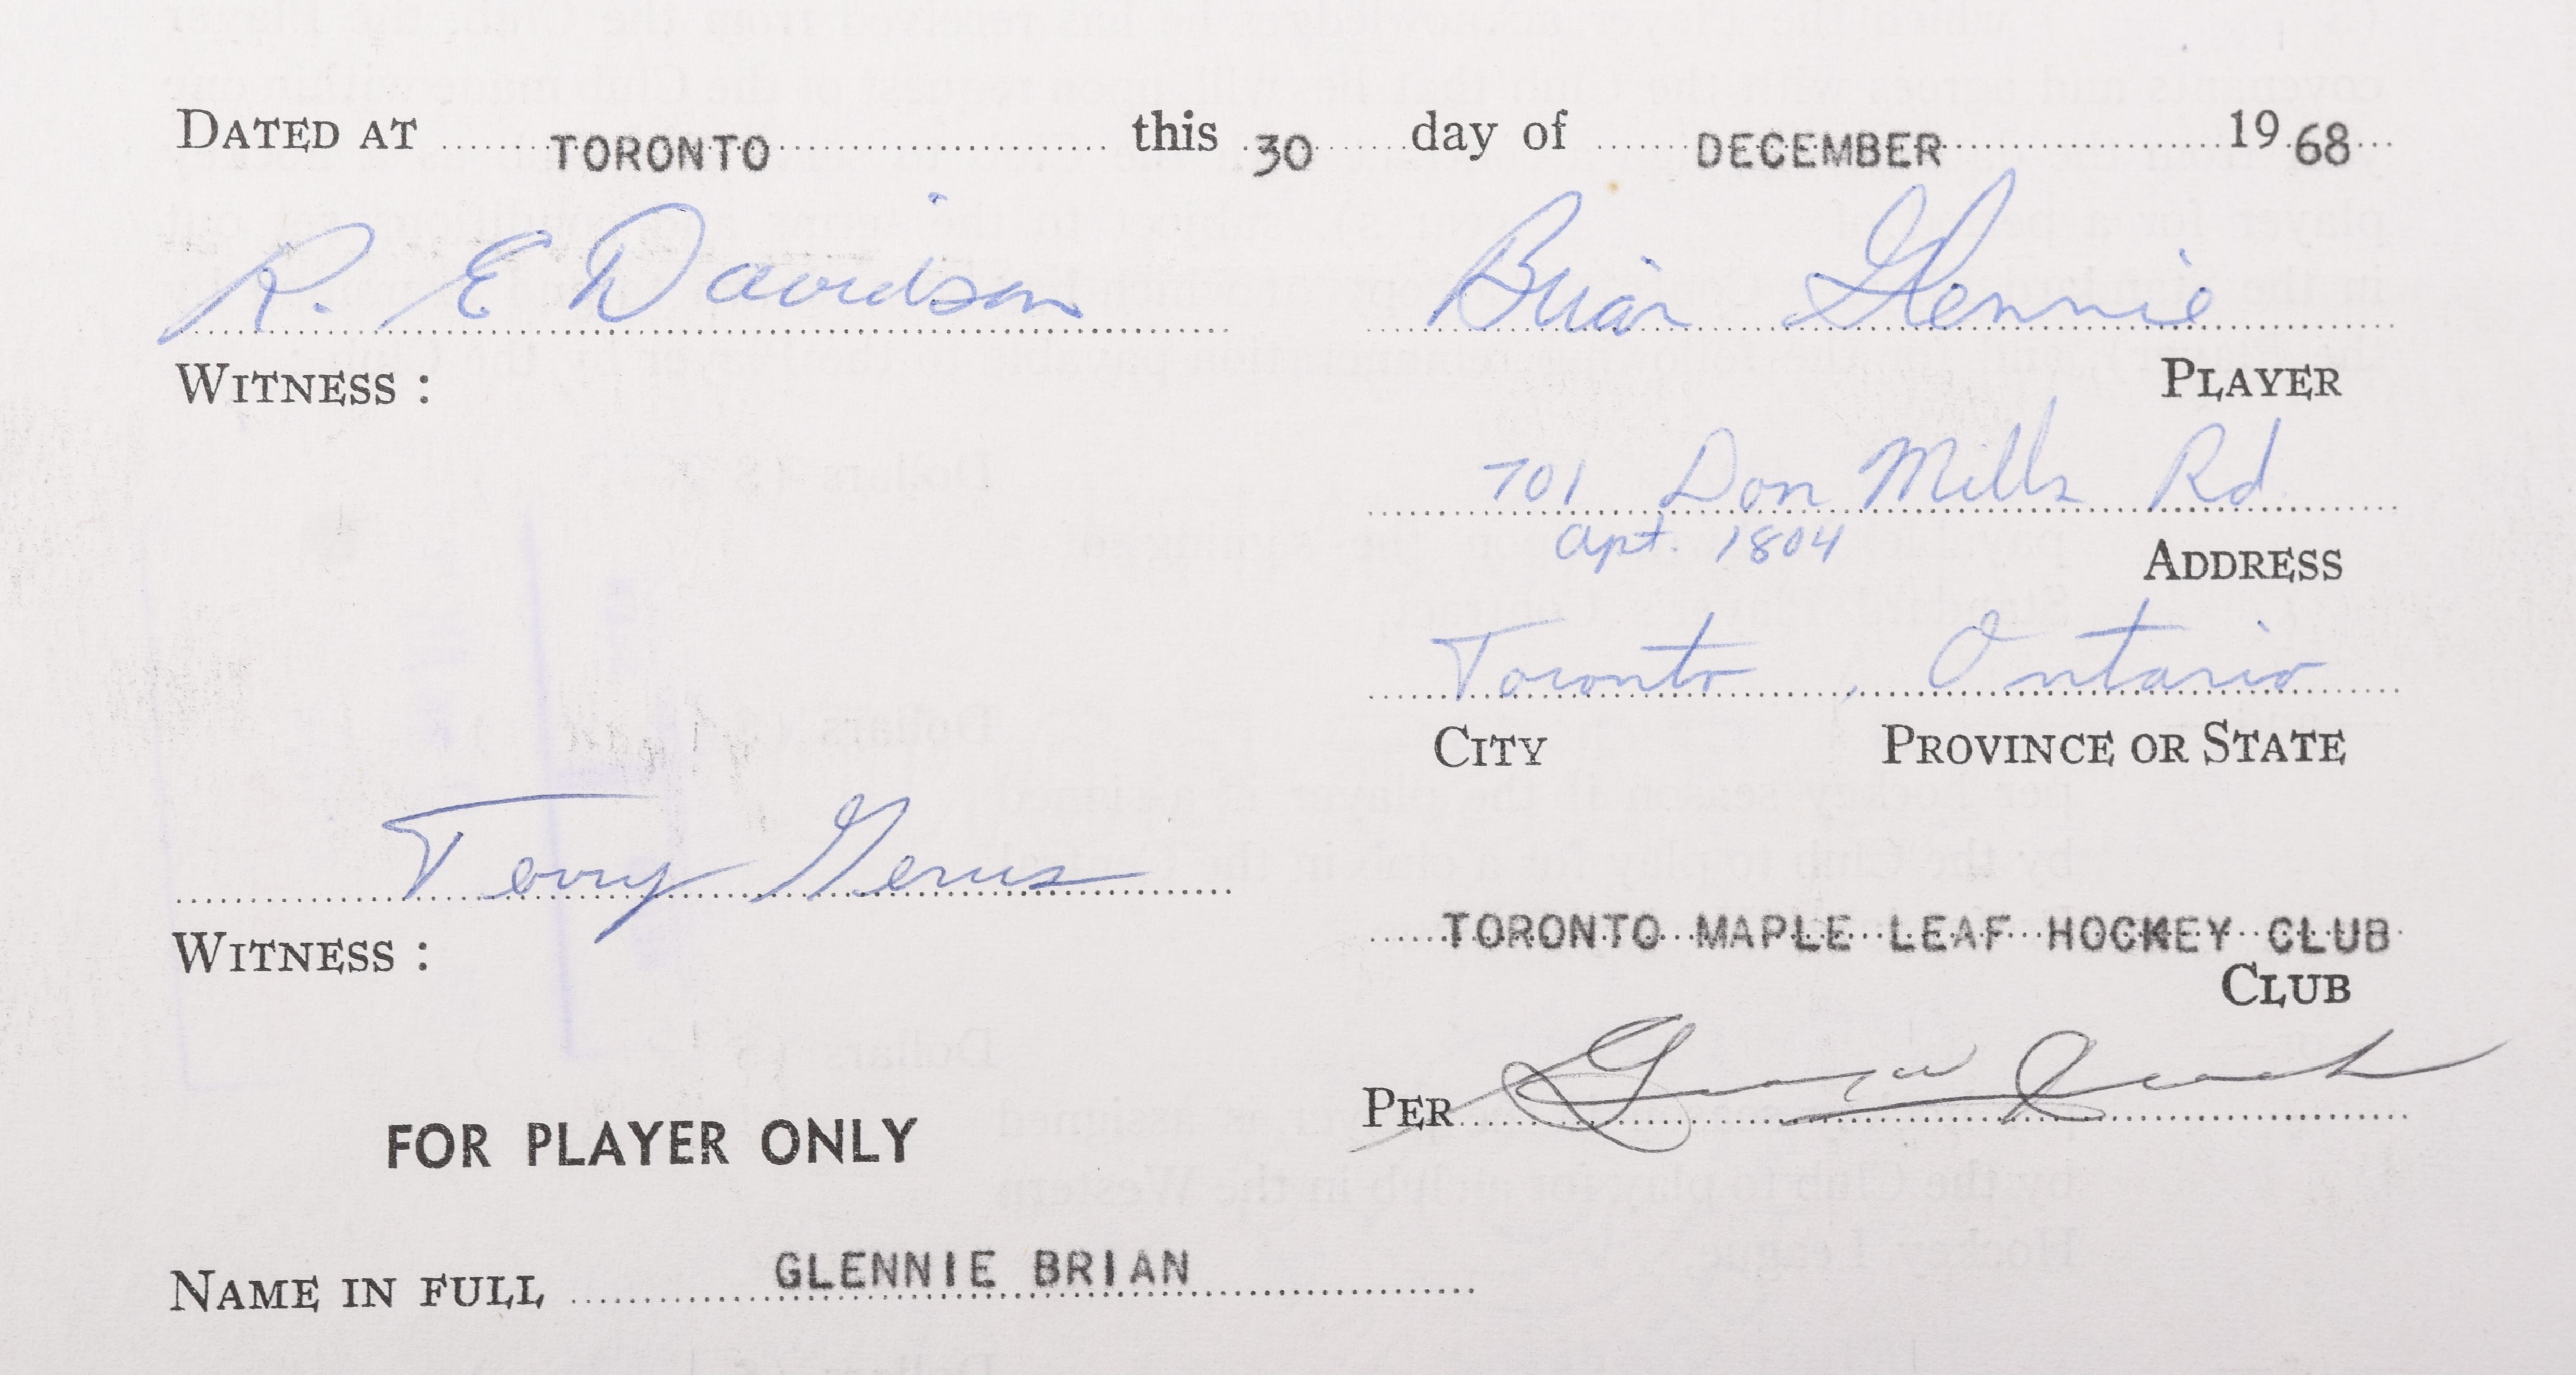 DATED AT TORONTO this 30 day of DECEMBER 1968
R. E Davidson Brian Glennie
WITNESS : PLAYER
701 Don Mills Rd
apt. 1804
ADDRESS
Toronto , Ontario
CITY PROVINCE OR STATE
Terry
WITNESS :
TORONTO MAPLE LEAF HOCKEY CLUB
CLUB
PER
FOR PLAYER ONLY
NAME IN FULL GLENNIE BRIAN